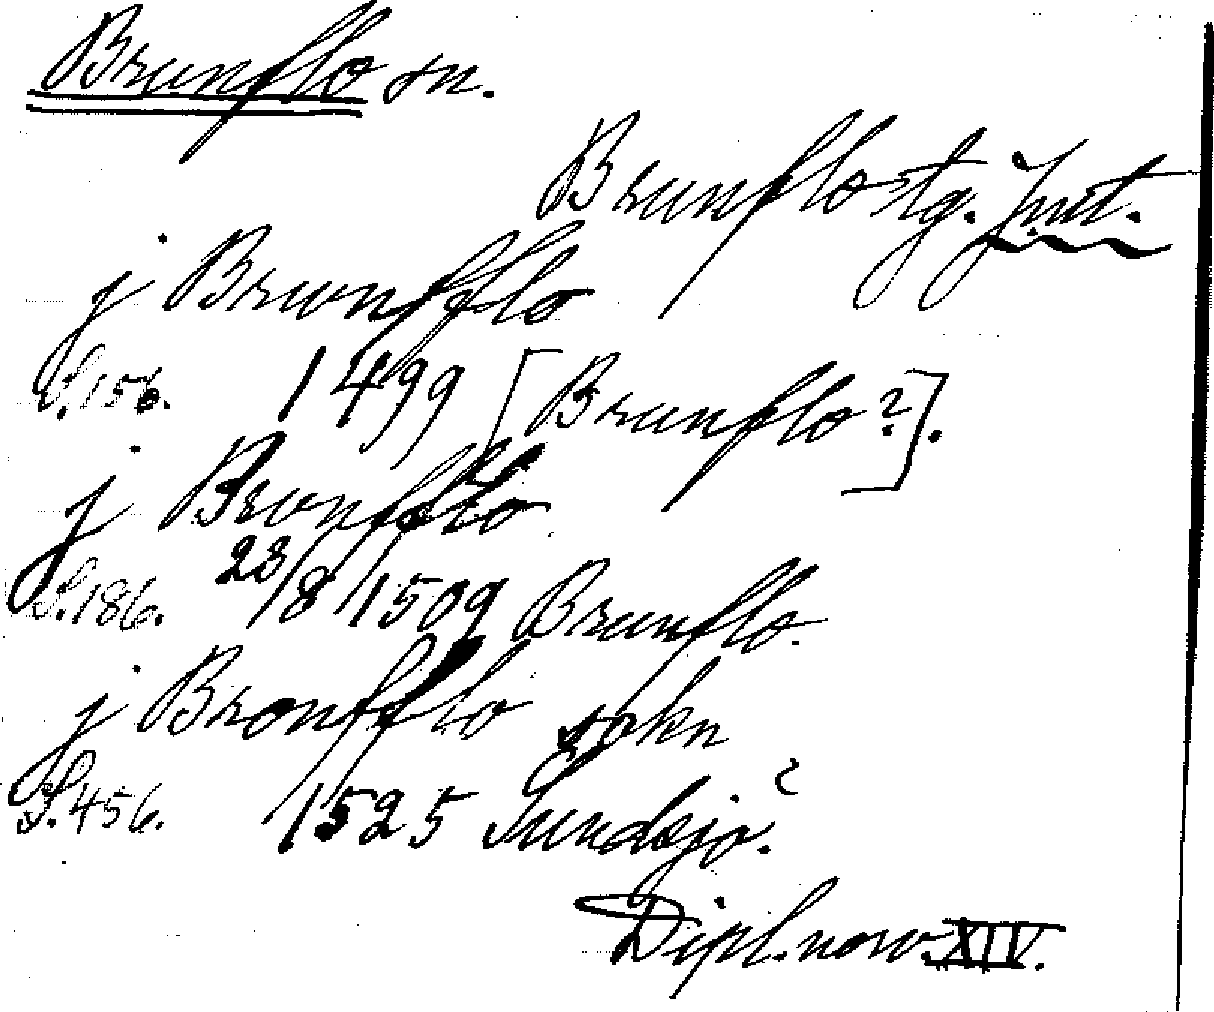 Brunflo sn.
Brunflo tg. Jmt.
j Brwnfflo
S. 156. 1499 [Brunflo?].
j Bronfflo
S. 186. 23/8 1509 Brunflo.
j Bronfflo sokn
S. 456. 1525 Sundsjö?.
Dipl. norv. XIV.